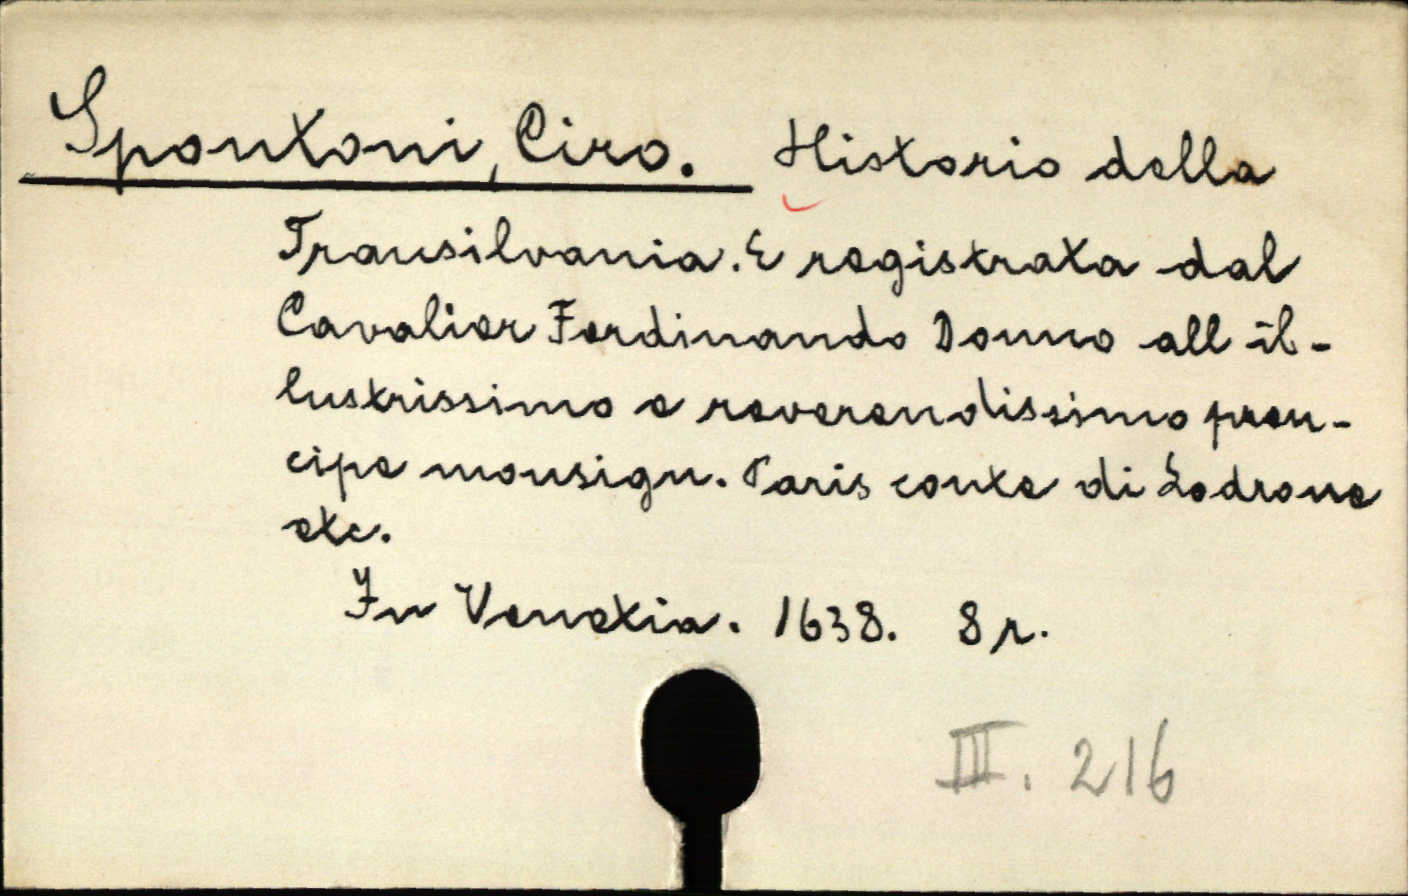 Spontoni, Ciro. Historio della
Transilvania. E registrata dal
Cavalier Ferdinando Donno all il-
lustrissimo e reverendissimo pren-
cipe monsign. Paris conte di Lodrone
etc.
In Venetia. 1638. 8 r.
III. 216